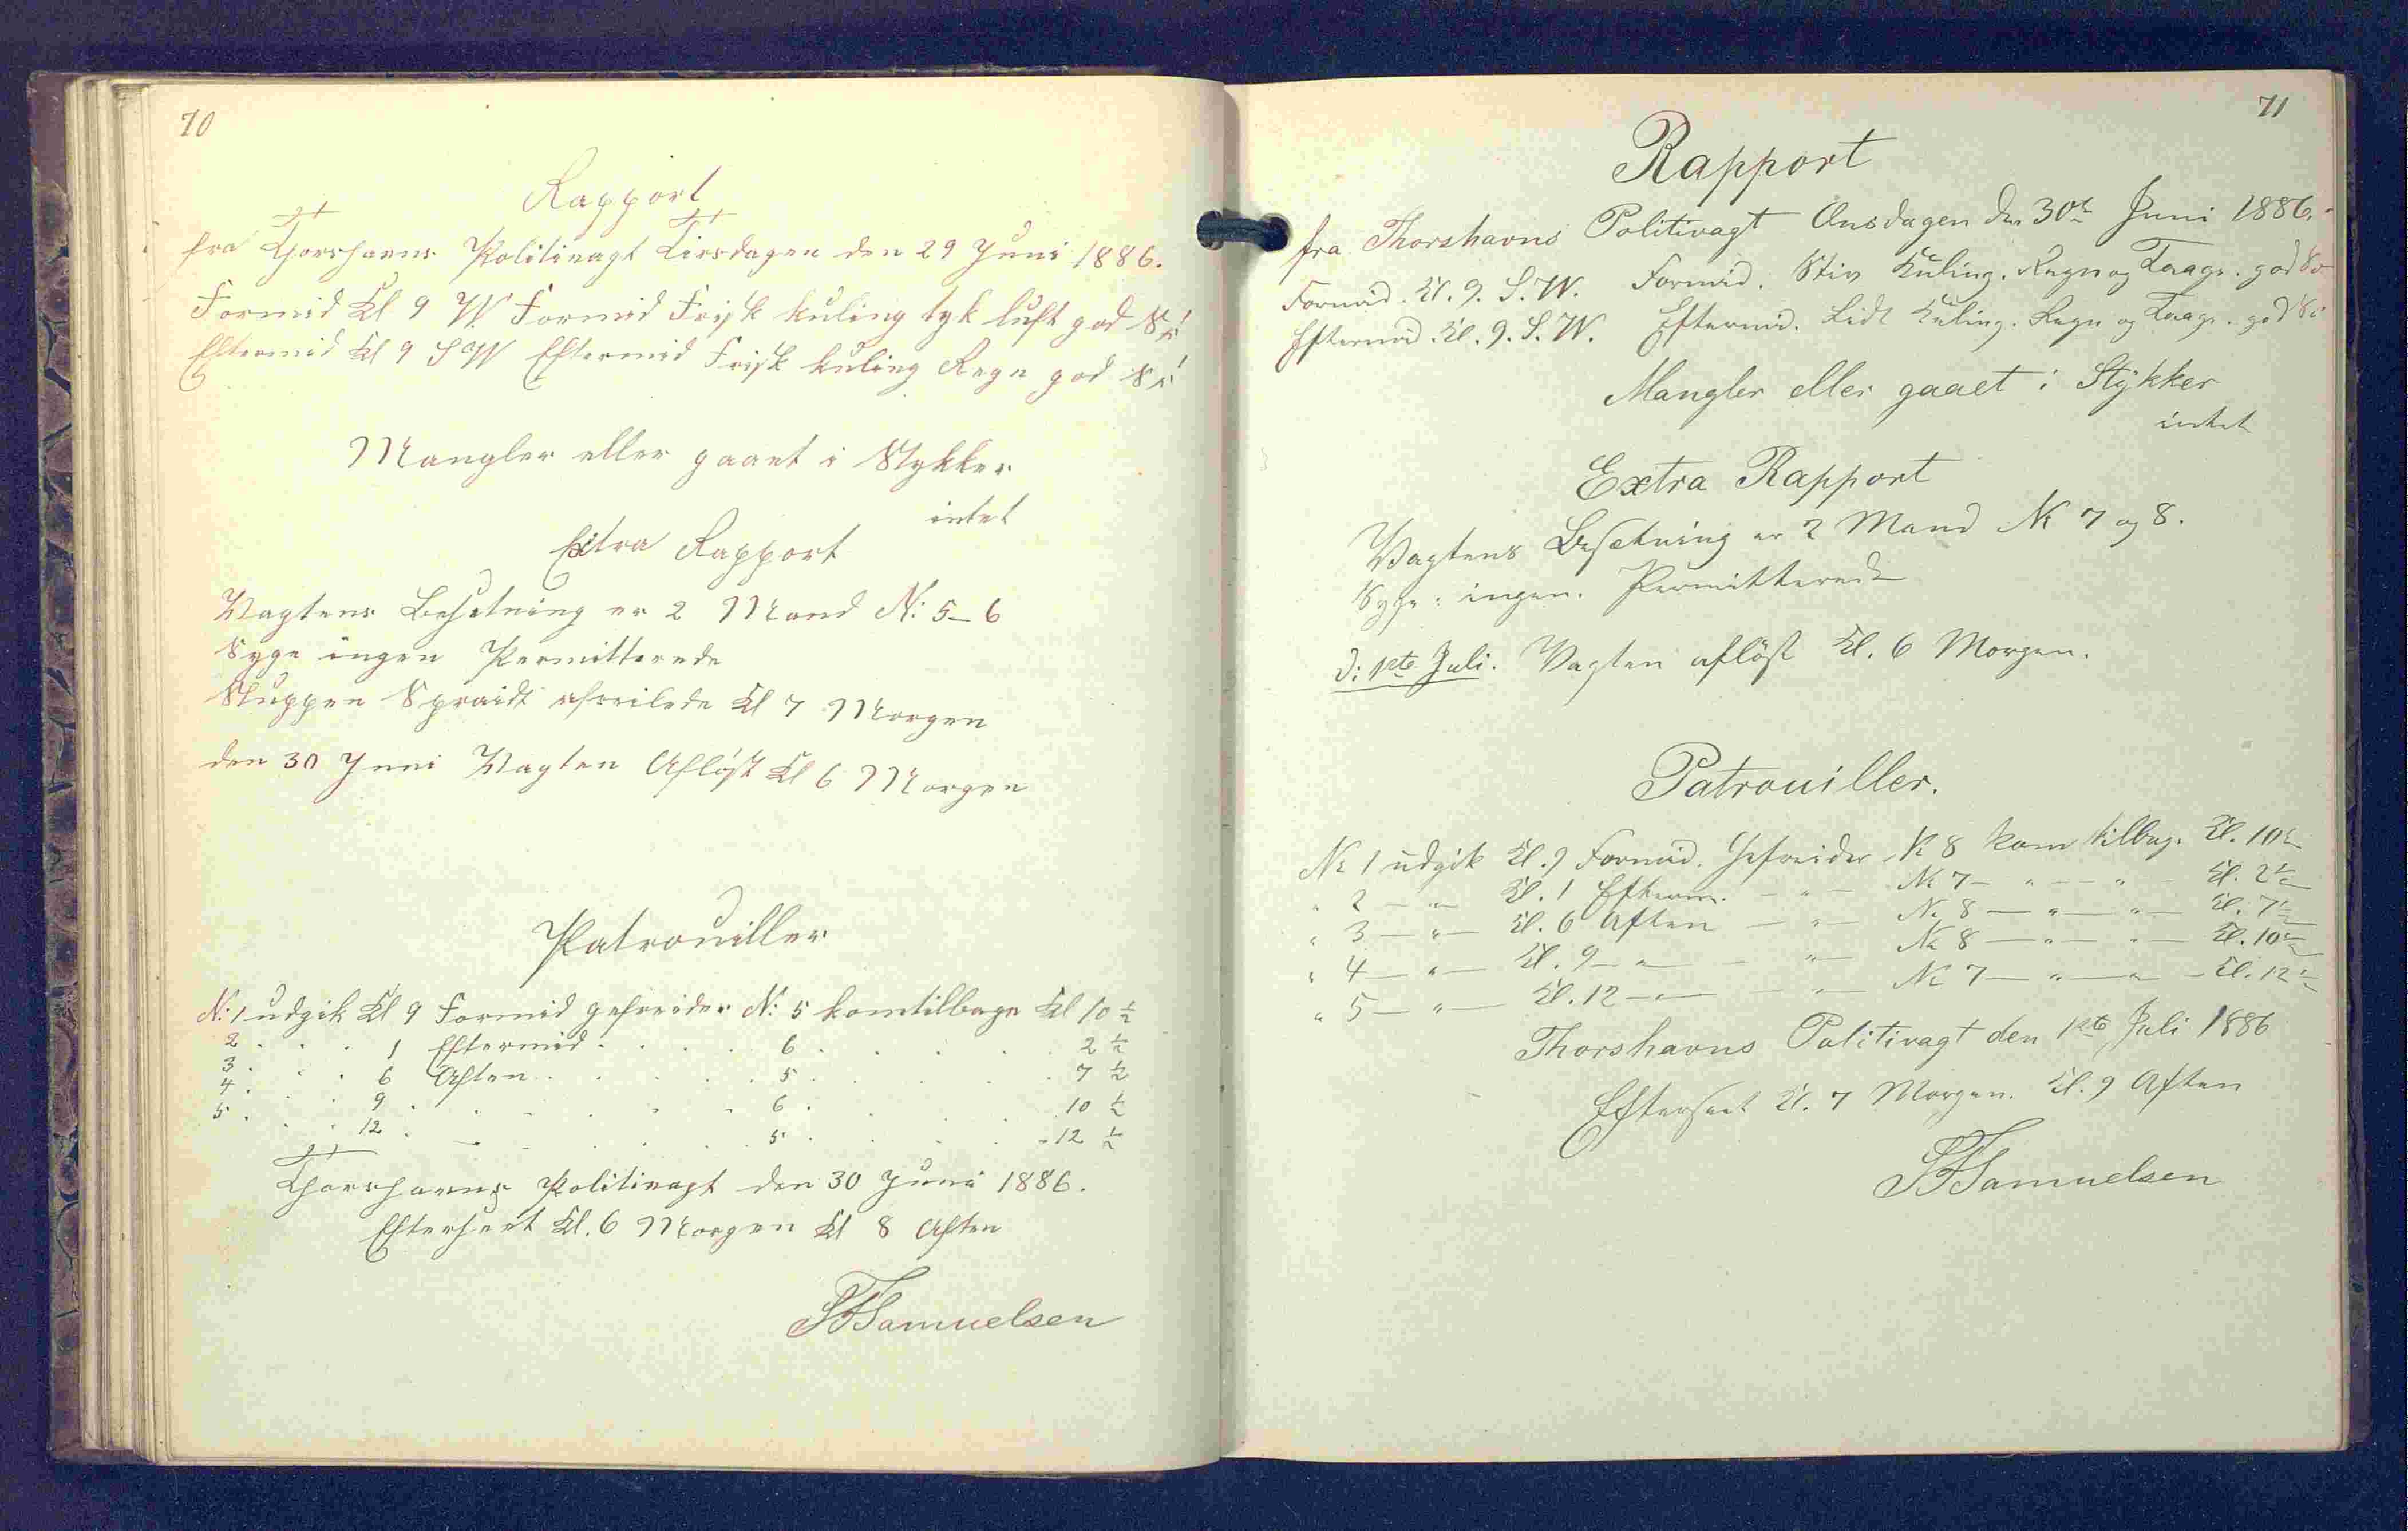 70
Rapport
fra Thorshavns Politivagt Tirsdagen den 29 Juni 1886.
Formid Kl 9 W. Formid Frisk kuling tyk luft god Sø
Eftermid Kl 9 SW Eftermid Frisk kuling Regn god Sø
Mangler eller gaaet i Stykker
intet
Extra Rapport
Vagtens Besetning er 2 Mand N: 5_6
Syge ingen Permitterede
Sluppen afseilede Kl 7 Morgen
den 30 Juni Vagten Afløst Kl 6 Morgen
Patrouiller
N: 1 udgik Kl 9 Formid gefreider N: 5 kom tilbage Kl 10 ½
2 . . . 1 Eftermid . . . . 6 . . . . 2 ½
3 . . . 6 Aften . . . . 5 . . . . 7 ½
4 . . . 9 . . . . . 6 . . . . 10 ½
5 . . . 12 . . . . . 5 . . . . 12 ½
Thorshavns Politivagt den 30 Juni 1886.
Efterseet Kl. 6 Morgen Kl 8 Aften
Samuelsen
71
Rapport
fra Thorshavns Politivagt Onsdagen den 30te Juni 1886.
Formid. Kl. 9. S.W. Formid. Stiv Kuling. Regn og Taage. god Sø
Eftermid. Kl. 9. S.W. Eftermid. Lidt Kuling. Regn og Taage. god Sø
Mangler eller gaaet i Stykker
intet
Extra Rapport
Vagtens Besætning er 2 Mand No 7 og 8.
Syge: ingen. Permitterede
D: 1ste Juli. Vagten afløst Kl. 6 Morgen.
Patrouiller.
No 1 udgik Kl. 9 Formid. Gefreider No 8 kom tilbage Kl. 10½
" 2 — " — Kl. 1 Efterm. — " — No 7 — " — " — Kl. 2½
" 3 — " — Kl. 6 Aften — " — No 8 — " — " — Kl. 7½
" 4 — " — Kl. 9 — " — — " — No 8 — " — " — Kl. 10½
" 5 — " — Kl. 12 — " — — " — No 7 — " — " — Kl. 12½
Thorshavns Politivagt den 1ste Juli 1886
Efterseet Kl. 7 Morgen. Kl. 9 Aften
Samuelsen